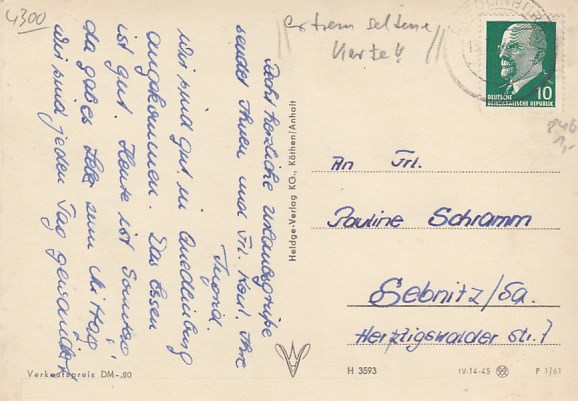 4300
extrem seltene
Karte!!
10
DEUTSCHE
DEMOKRATISCHE REPUBLIK
Recht herzliche Urlaubsgrüße
sendet Ihnen und Frl. Karl. Ihre
Wir sind gut in Quedlinburg
angekommen. Das Essen
ist gut. Heute ist Sonntag
da gab es zum Mittag
Wir sind jeden Tag gewandert
Heldge-Verlag KG., Köthen/Anhalt
An Frl.
Pauline Schramm
Sebnitz/Sa.
Hertzigswalder Str. 7
Verkaufspreis DM -.20
H 3593
IV-14-45
P 1/61